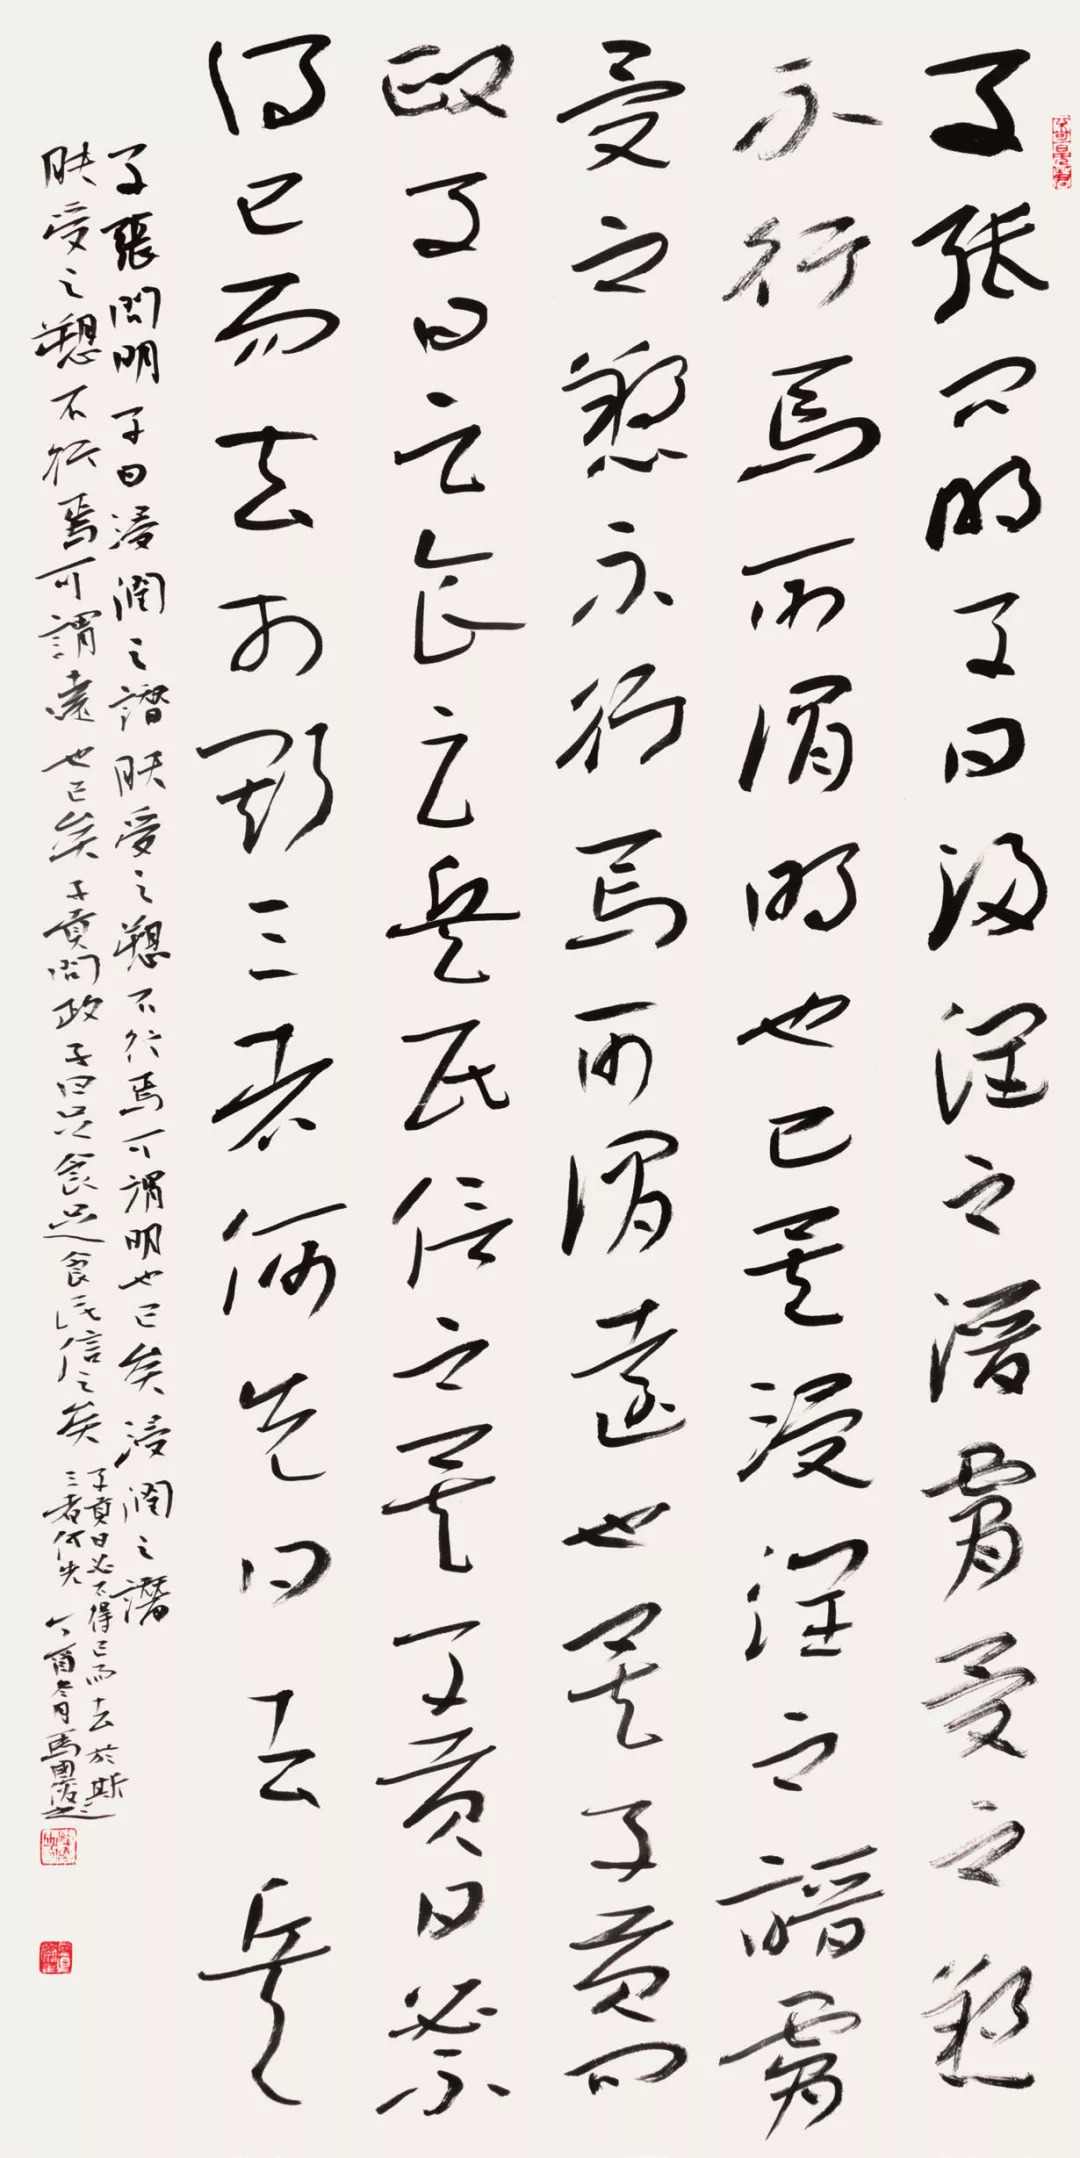 子張問明子曰浸潤之譖膚受之愬
不行焉可謂明也已矣浸潤之譖膚
受之愬不行焉可謂遠也矣子貢問
政子曰足食足兵民信之矣子貢曰必不
得已而去於斯三者何先曰去兵
子張問明子曰浸潤之譖肤受之愬不行焉可謂明也已矣浸潤之譖
肤受之愬不行焉可謂遠也已矣子貢問政子曰足食足食民信之矣
子貢曰必不得已而去於斯
三者何先 丁酉冬月馬國俊題